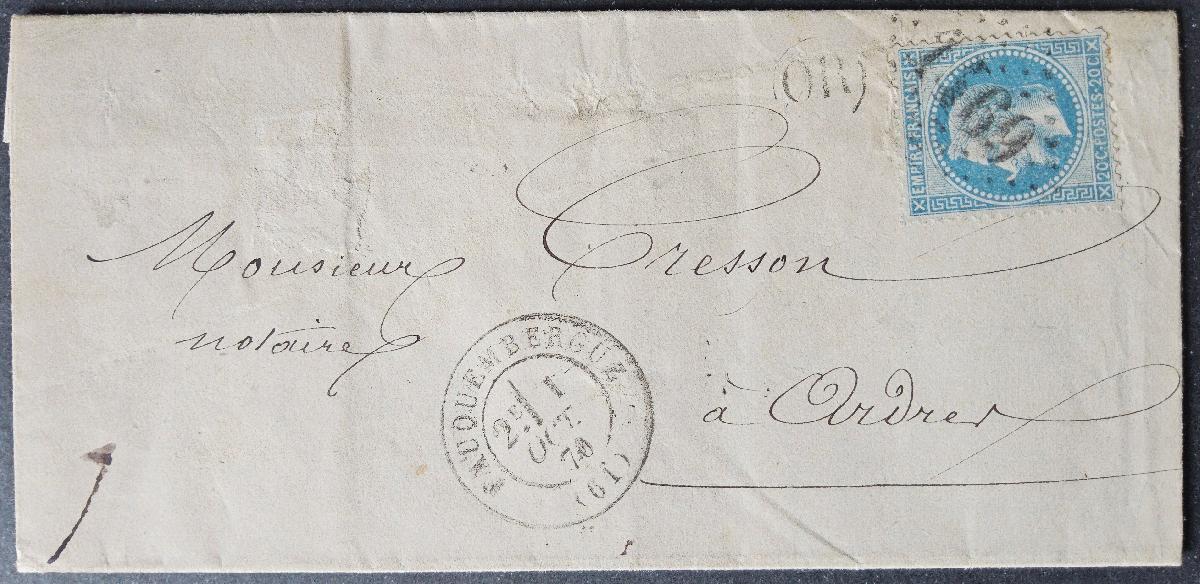 (OR)
EMPIRE FRANÇAIS
20 C - POSTES - 20 C
69
Monsieur Cresson
notaire
à Ardres
FAUQUEMBERGUE
1
25
OCT.
70
(61)